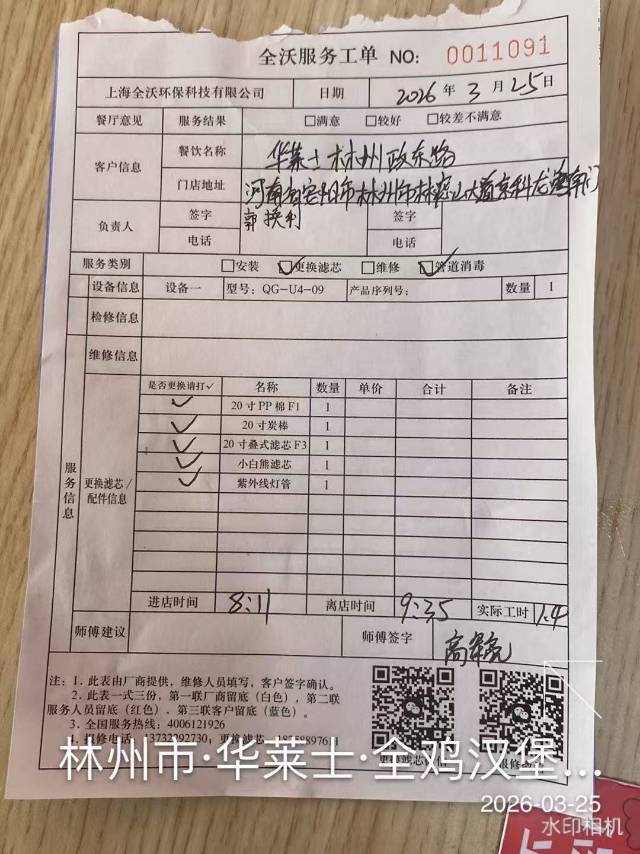 全沃服务工单 NO: 0011091
上海全沃环保科技有限公司 日期 2026 年 3 月 25 日
餐厅意见 服务结果 □满意 □较好 □较差不满意
客户信息 餐饮名称 华莱士林州政东路
门店地址 河南省安阳市林州市林虑山大道京科龙
负责人 签字 郭换利 签字
电话 电话
服务类别 □安装 ☑更换滤芯 □维修 ☑管道消毒
设备信息 设备一 型号: QG-U4-09 产品序列号: 数量 1
检修信息
维修信息
服务信息
更换滤芯/配件信息
是否更换请打✓ 名称 数量 单价 合计 备注
✓ 20寸PP棉F1 1
✓ 20寸炭棒 1
✓ 20寸叠式滤芯F3 1
✓ 小白熊滤芯 1
✓ 紫外线灯管 1
进店时间 8:11 离店时间 9:35 实际工时 1.4
师傅建议 师傅签字 高
注: 1. 此表由厂商提供, 维修人员填写, 客户签字确认。
2. 此表一式三份, 第一联厂商留底(白色), 第二联
服务人员留底(红色), 第三联客户留底(蓝色)。
3. 全国服务热线: 4006121926
4. 报修电话: 更换滤芯
林州市·华莱士·全鸡汉堡...
2026-03-25
水印相机